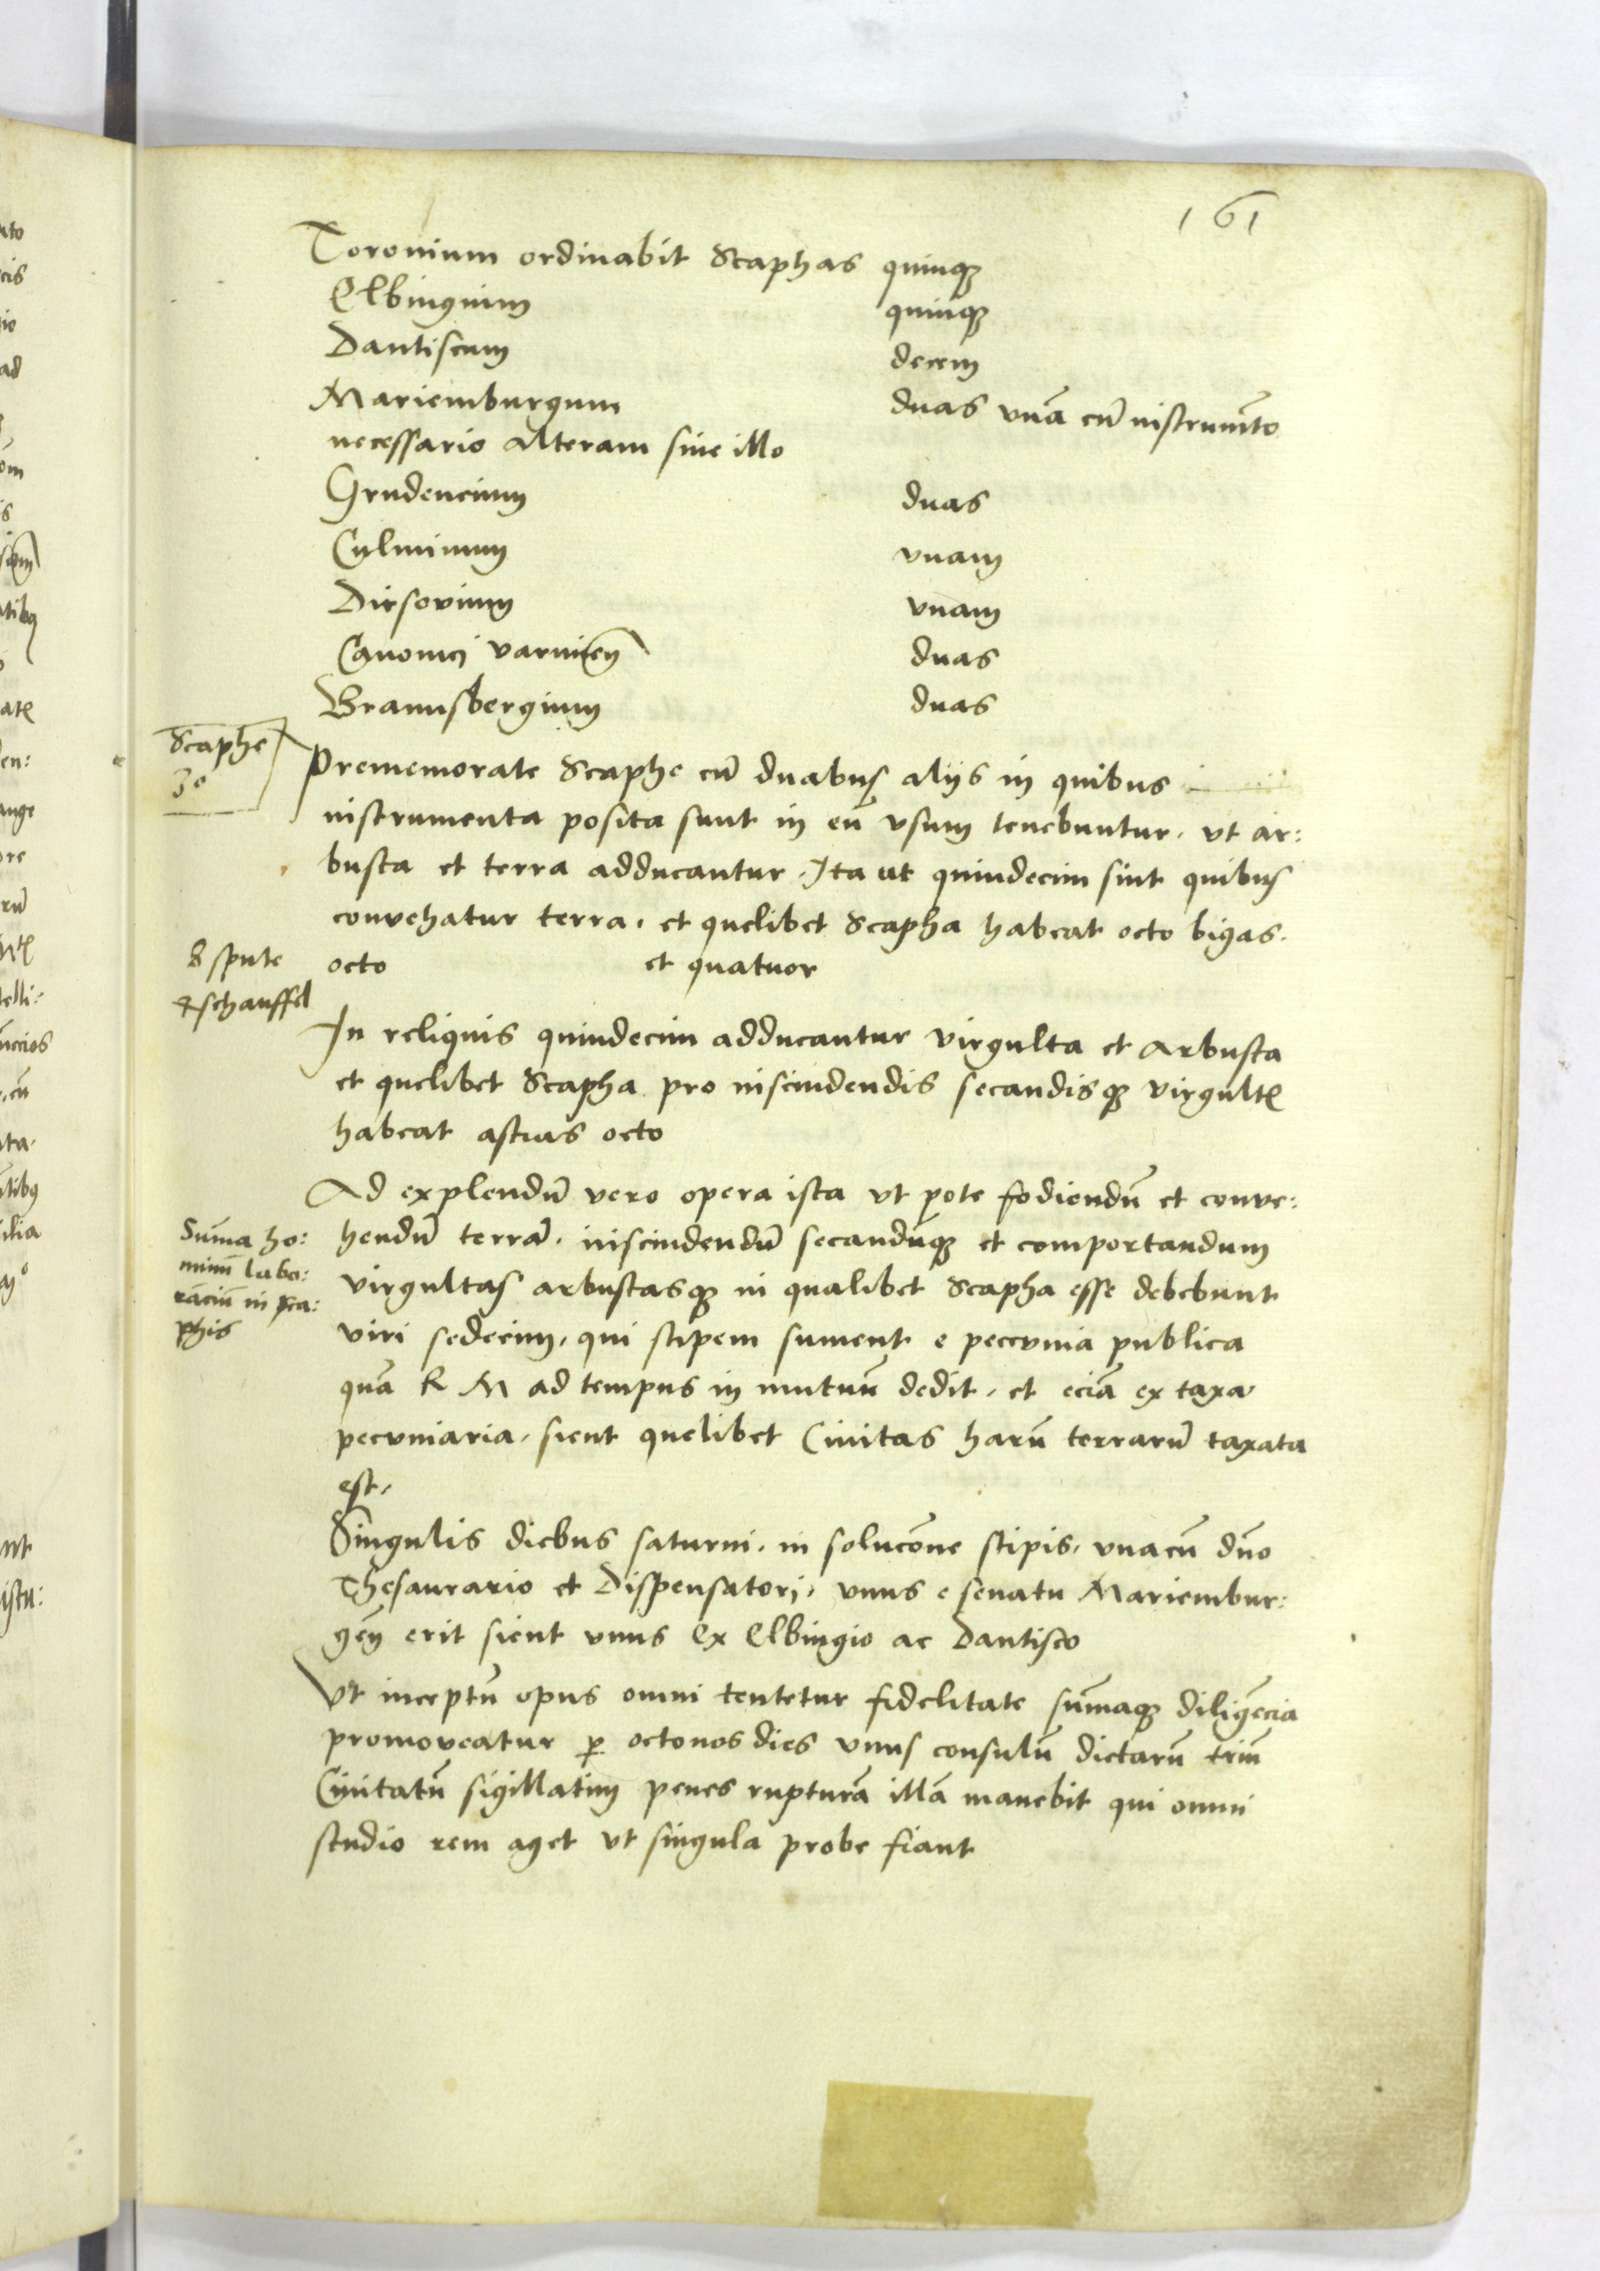 161
Toronium ordinabit Scaphas quinq3
Elbingium quinq3
Dantiscum decem
Mariemburgum duas vnā cū instrumēto
necessario alteram sine illo
Grudencium duas
Culminum vnam
Dirsovium vnam
Canonici varmien̄ duas
Braunsbergium duas
Scaphe
30
Prememorate Scaphe cū duabus alijs in quibus
instrumenta posita sunt in eū vsum tenebuntur, vt ar:
busta et terra adducantur, Ita ut quindecim sint quibus
convehatur terra, et quelibet Scapha habeat octo bigas.
octo et quatuor
8 spute
4 schauffel
In reliquis quindecim adducantur virgulta et arbusta
et quelibet Scapha pro inscindendis secandisq3 virgult
habeat ascias octo
Ad explendū vero opera ista vt pote fodiendū et conve:
hendū terrā, inscindendū secandūq3 et comportandum
virgultas arbustasq3 in qualibet Scapha esse debebunt
viri sedecim, qui stipem sument e peccunia publica
quā R M ad tempus in mutuū dedit, et eciā ex taxa
pecuniaria, sicut quelibet Civitas harū terrarū taxata
est,
Sūma ho:
minū labo:
rāciū in sca:
phis
Singulis diebus saturni, in solucōne stipis, vnacū dn̄o
Thesaurario et Dispensatori, vnus e senatu Mariembur:
gen̄ erit sicut vnus ex Elbingio ac Dantisco
Vt inceptū opus omni tentetur fidelitate sūmaq3 diligēcia
promoveatur p octonos dies vnus consulū dictarū triū
Civitatū sigillatim penes rupturā illā manebit qui omni
studio rem aget vt singula probe fiant